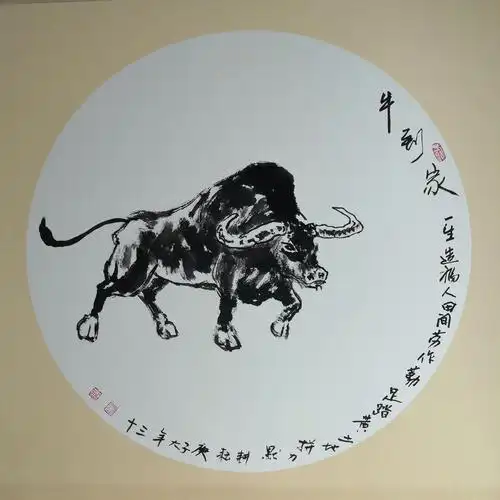 牛到家
一生造福人田間劳作勤足踏黄土地拼力默耕耘庚子大年十三